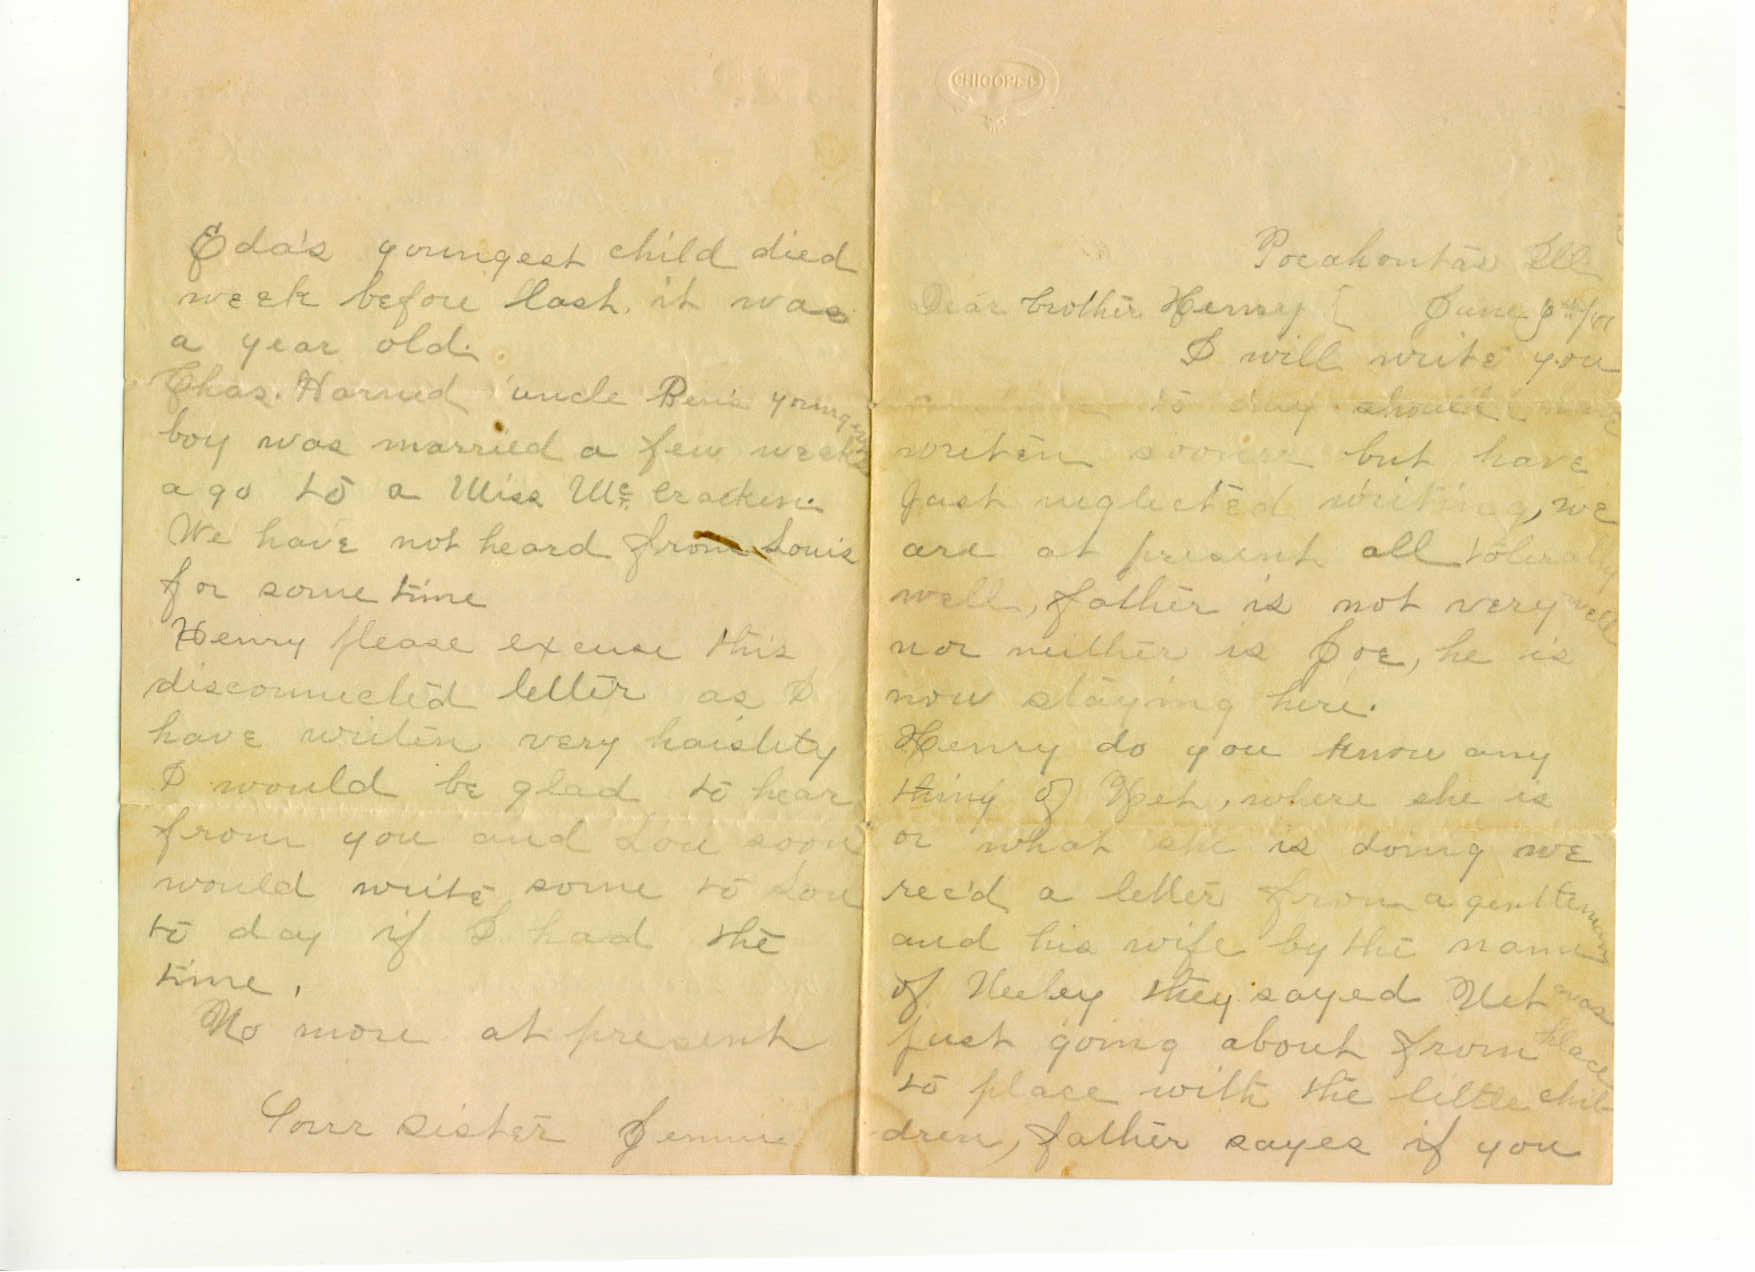 CHICOPEE
Pocahontas Ill
Dear brother Henry June
I will write you
to day should have
writen sooner but have
just neglected writing, we
are at present all tolerally
well, father is not very well
nor neither is Joe, he is
now staying here.
Henry do you know any
thing of Net, where she is
or what she is doing we
rec'd a letter from a gentleman
and his wife by the name
of Neeley they sayed Net was
just going about from place
to place with the little chil-
dren, father sayes if you
Eda's youngest child died
week before last, it was
a year old.
Chas. Harned uncle Ben's youngest
boy was married a few weeks
ago to a Miss Mc Cracken.
We have not heard from Louis
for some time
Henry please excuse this
disconnected letter as I
have writen very haistity
I would be glad to hear
from you and Lou soon
would write some to Lou
to day if I had the
time.
No more at present
Your sister Jennie